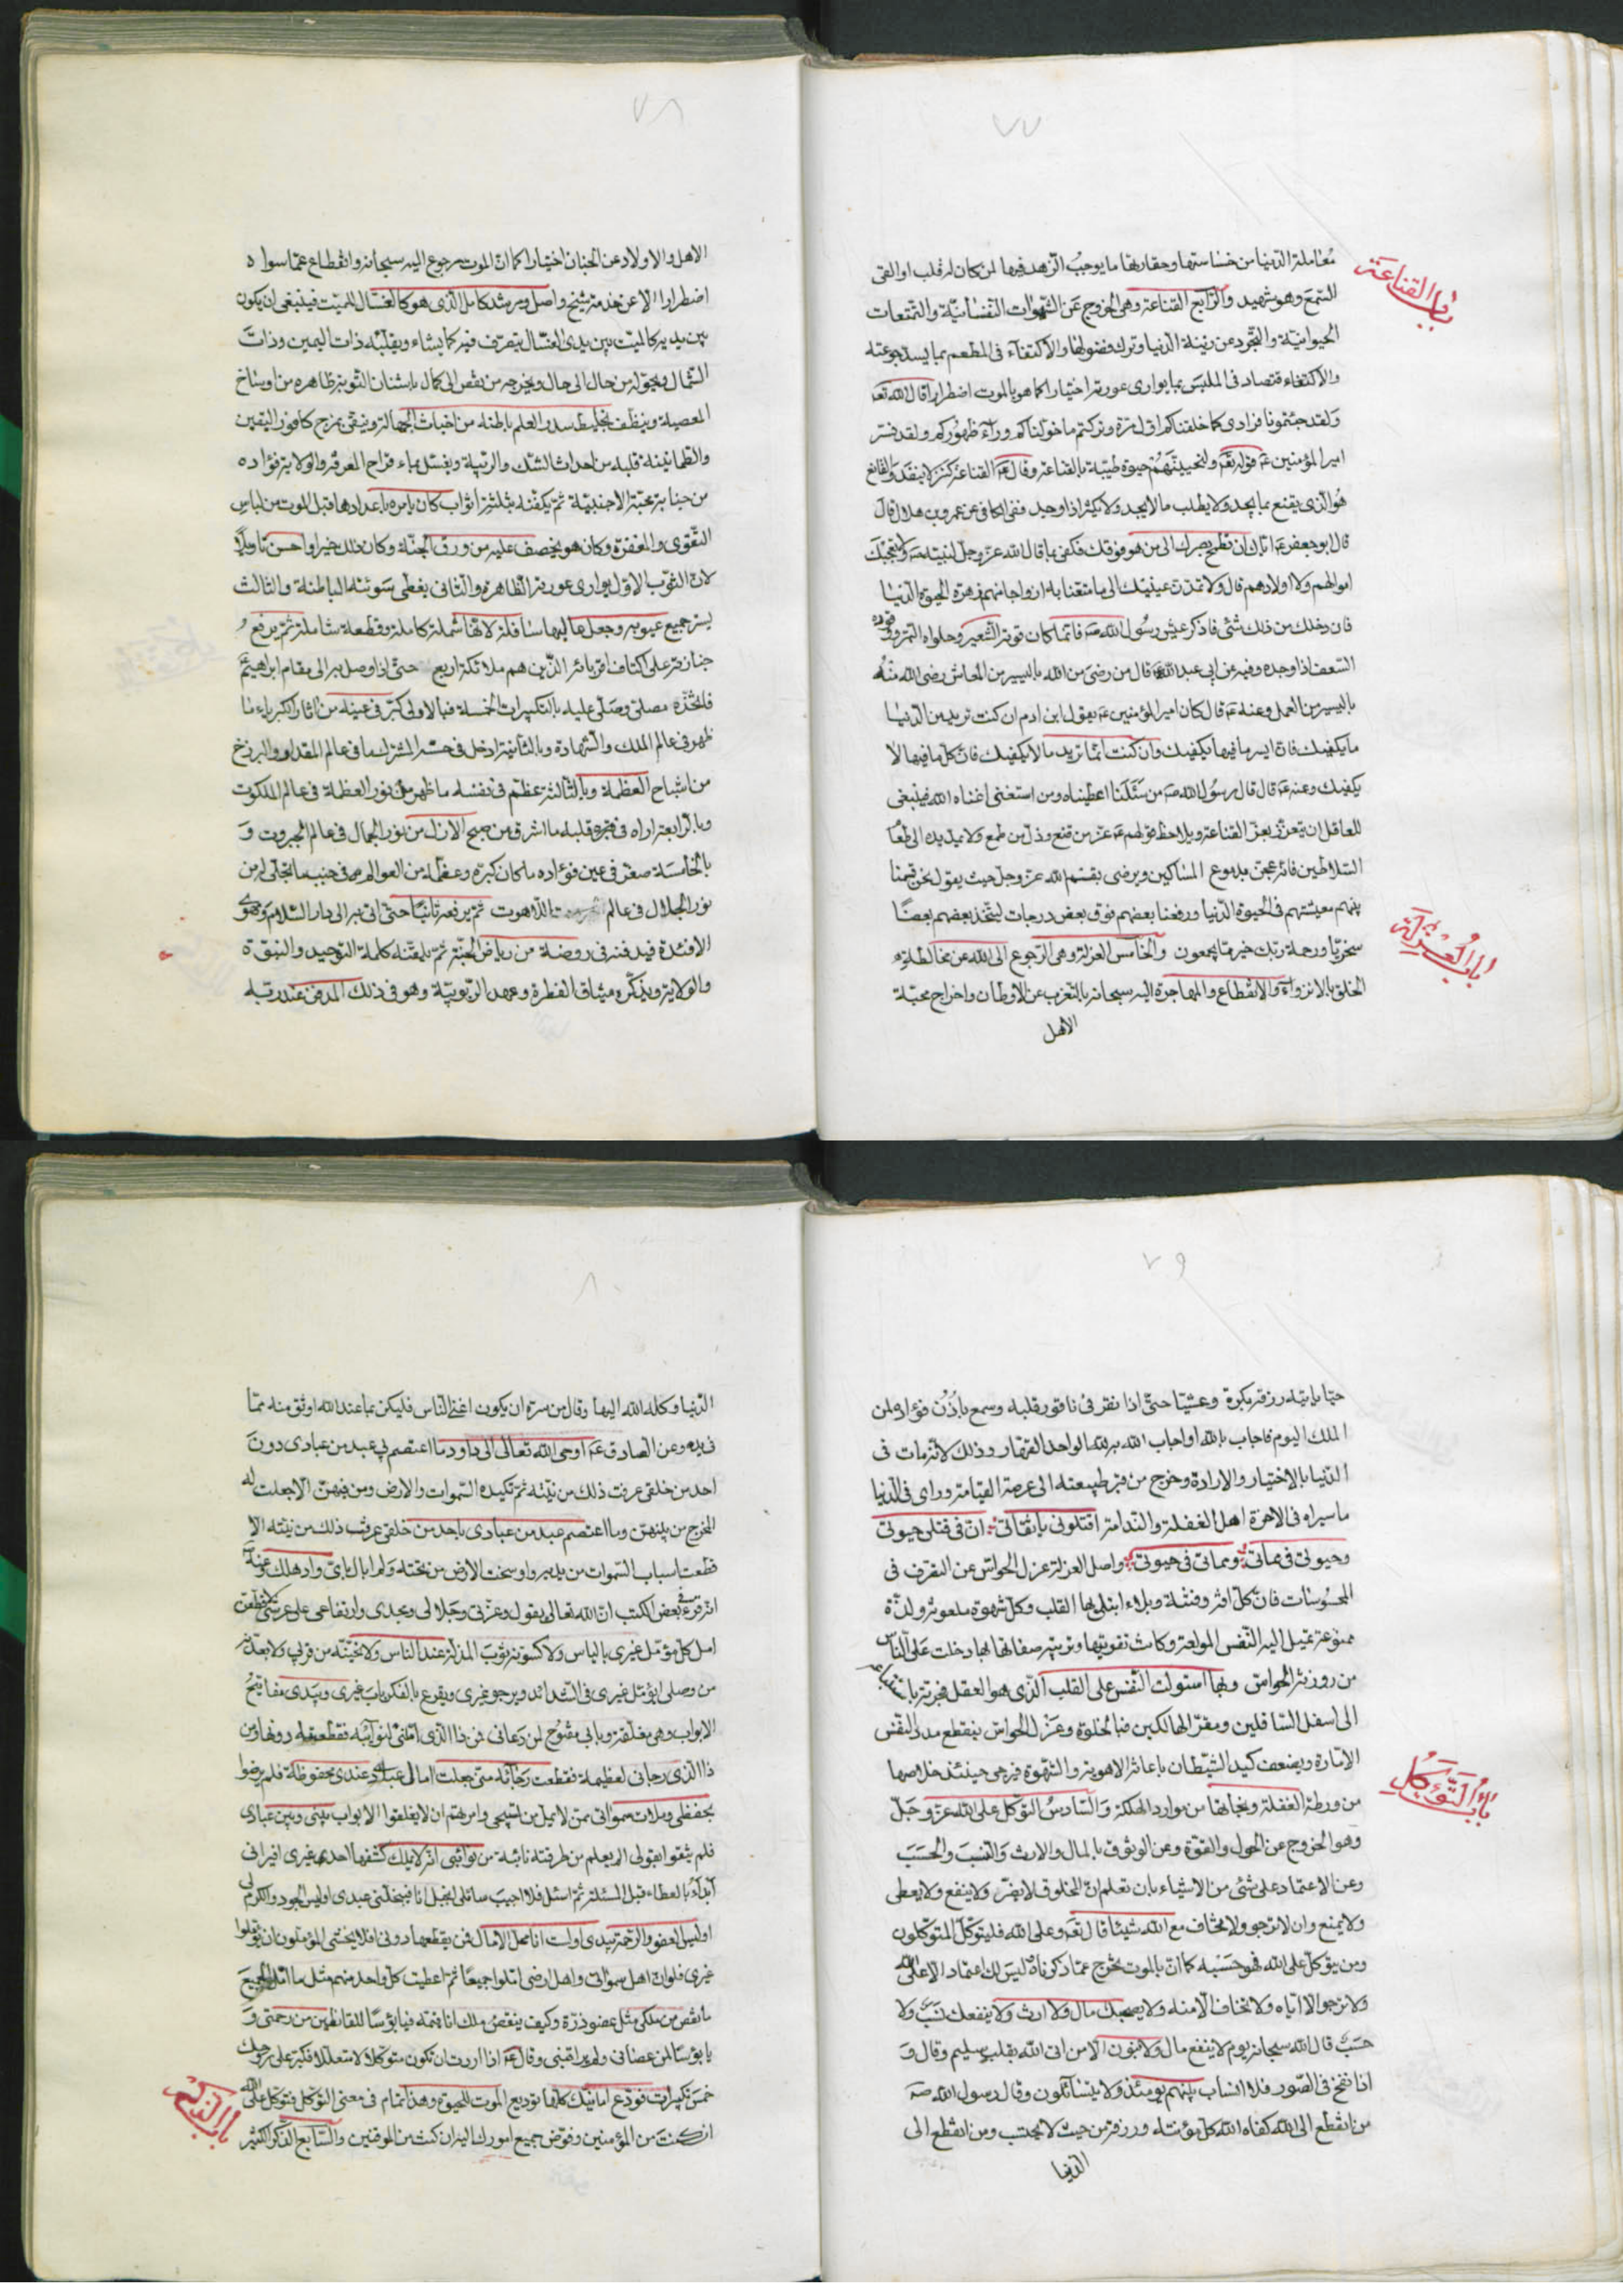 ٧٧
معاملة الدنيا من خساستها وحقارتها ما يوجب الزهد فيها لمن كان له قلب او القى
باب القناعة
السمع وهو شهيد والرابع القناعة وهى الخروج عن الشهوات النفسانية والتمتعات
الحيوانية والتجرد عن زينة الدنيا وترك فضولها والاكتفآء فى المطعم بما يسد جوعته
والاكتفاء قتصاد فى الملبس بما يوارى عورته اختيارا كما هو بالموت اضطرارا قال الله تعه
ولقد جئتمونا فرادى كما خلقناكم اول مرة وتركتم ما خولناكم ورآء ظهوركم ولقد فسر
امير المؤمنين عه قوله تعه ولنحيينهم حيوة طيبة بالقناعة وقال عه القناعة كنز لا ينفد والقانع
هو الذى يقنع بما يجد ولا يطلب ما لا يجد ولا يكثر اذا وجد ففى الكافى عن عمرو بن هلال قال
قال ابو جعفر عه اياك ان تطمح بصرك الى من هو فوقك فكفى بما قال الله عز وجل لنبيه صه ولا تعجبك
اموالهم ولا اولادهم قال ولا تمدن عينيك الى ما متعنا به ازواجا منهم زهرة الحيوة الدنيا
فان دخلك من ذلك شئ فاذكر عيش رسول الله صه فانما كان قوته الشعير وحلواه التمر ووقوده
السعف اذا وجده وفيه عن ابى عبد الله عه قال من رضى من الله باليسير من المعاش رضى الله منه
باليسير من العمل وعنه عه قال كان امير المؤمنين عه يقول ابن ادم ان كنت تريد من الدنيا
ما يكفيك فان ايسر ما فيها يكفيك وان كنت انما تريد ما لا يكفيك فان كل ما فيها لا
يكفيك وعنه عه قال قال رسول الله صه من سئلنا اعطيناه ومن استغنى اغناه الله فينبغى
للعاقل ان يتعزز بعز القناعة ويلاحظ قولهم عه عز من قنع وذل من طمع ولا يمد يده الى طعآ
السلاطين فانه عجن بدموع المساكين ويرضى بقسم الله عز وجل حيث يقول نحن قسمنا
بينهم معيشتهم فى الحيوة الدنيا ورفعنا بعضهم فوق بعض درجات ليتخذ بعضهم بعضا
باب العزلة
سخريا ورحمة ربك خير مما يجمعون والخامس العزلة وهى الرجوع الى الله عن مخالطة
الخلق بالانزوآء والانقطاع والمهاجرة اليه سبحانه بالتغرب عن الاوطان واخراج محبة
الاهل
٧٨
الاهل والاولاد عن الجنان اختيارا كما ان الموت رجوع اليه سبحانه وانقطاع عما سواه
اضطرارا الا عن خدمة شيخ واصل ومرشد كامل الذى هو كالغسال للميت فينبغى ان يكون
بين يديه كالميت بين يدى الغسال يتصرف فيه كما يشاء ويقلبه ذات اليمين وذات
الشمال ويحوله من حال الى حال ويخرجه من نقص الى كمال باشنان التوبة ظاهره من اوساخ
المعصية وينظف بخليط سدر العلم باطنه من اخباث الجهالة وينقى بمزج كافور اليقين
والطمانينة قلبه من احداث الشك والريبة ويغسل بماء قراح المعرفة والولاية فؤاده
من جنابة محبة الاجنبية ثم يكفنه بثلثة اثواب كان يامره باعدادها قبل الموت من لباس
التقوى والمغفرة وكان هو يخصف عليه من ورق الجنة وكان ذلك خيرا واحسن تاويلا
لان الثوب الاول يوارى عورته الظاهرة والثانى يغطى سوئته الباطنة والثالث
يستر جميع عيوبه وجعل عاليها سافلة لانها شملة كاملة وقطعة شاملة ثم يرفع
جنازته على اكتاف اقربائه الذين هم ملائكة اربع حتى اذا وصل به الى مقام ابراهيم
فاتخذه مصلى وصلى عليه بالتكبيرات الخمسة فبالاولى كبر فى عينه من اثار الكبرياء ما
ظهر فى عالم الملك والشهادة وبالثانية ادخل فى حس المشترك ما فى عالم المقدار والبرزخ
من اشباح العظمة وبالثالثة عظم فى نفسه ما ظهر من نور العظمة فى عالم الملكوت
وبالرابعة اراه فى قلبه ما اشرق من صبح الازل من نور الجمال فى عالم الجبروت و
بالخامسة صغر فى عين فؤاده ما كان كبره وعظمه من العوالم فى جنب ما تجلى له من
نور الجلال فى عالم اللاهوت ثم يرفعه ثانيا حتى اتى به الى دار السلام وتهوى
الافئدة فيدفنه فى روضة من رياض الجنة ثم يلقنه كلمة التوحيد والنبوة
والولاية ويذكره ميثاق الفطرة وعهد الربوبية وهو فى ذلك المدفن عند ربه
٧٩
حيا ياتيه رزقه بكرة وعشيا حتى اذا نقر فى ناقور قلبه وسمع باذن فؤاده لمن
الملك اليوم فاجاب بالله او اجاب الله به لله الواحد القهار وذلك لانه مات فى
الدنيا بالاختيار والارادة وخرج من قبر طبيعته الى عرصة القيامة وراى فى الدنيا
ما سيراه فى الاخرة اهل الغفلة والندامة اقتلونى يا ثقاتى ان فى قتلى حيوتى
وحيوتى فى مماتى ومماتى فى حيوتى واصل العزلة عزل الحواس عن التصرف فى
المحسوسات فان كل افة وفتنة وبلاء ابتلى بها القلب وكل شهوة ملعونة ولذة
ممنوعة تميل اليه النفس المولعة وكانت تقويتها وتربية صفاتها بها دخلت على الناس
من روزنة الحواس وبها استولت النفس على القلب الذى هو العقل فجرته
الى اسفل السافلين ومقر الهالكين فبالخلوة وعزل الحواس ينقطع مدد النفس
الامارة ويضعف كيد الشيطان باعانة الاهوية والشهوة فيرجى حينئذ خلاصها
باب التوكل
من ورطة الغفلة ونجاتها من موارد الهلكة والسادس التوكل على الله عز وجل
وهو الخروج عن الحول والقوة وعن الوثوق بالمال والارث والنسب والحسب
وعن الاعتماد على شئ من الاشياء بان تعلم ان المخلوق لا يضر ولا ينفع ولا يعطى
ولا يمنع وان لا ترجو ولا تخاف مع الله شيئا قال تعه وعلى الله فليتوكل المتوكلون
ومن يتوكل على الله فهو حسبه كما ان بالموت يخرج عما ذكرناه ليس لك اعتماد الا على الله
ولا ترجو الا اياه ولا تخاف الا منه ولا يصحبك مال ولا ارث ولا ينفعك نسب ولا
حسب قال الله سبحانه يوم لا ينفع مال ولا بنون الا من اتى الله بقلب سليم وقال و
اذا نفخ فى الصور فلا انساب بينهم يومئذ ولا يتسائلون وقال رسول الله صه
من انقطع الى الله كفاه الله كل مؤنته ورزقه من حيث لا يحتسب ومن انقطع الى
الدنيا
٨٠
الدنيا وكله الله اليها وقال من سره ان يكون اغنى الناس فليكن بما عند الله اوثق منه مما
فى يده وعن الصادق عه اوحى الله تعالى الى داود ما اعتصم بى عبد من عبادى دون
احد من خلقى عرفت ذلك من نيته ثم تكيده السموات والارض ومن فيهن الا جعلت له
المخرج من بينهن وما اعتصم عبد من عبادى باحد من خلقى عرفت ذلك من نيته الا
قطعت اسباب السموات من يديه واسخت الارض من تحته ولم ابال باى واد هلك وعنه
انه قرء فى بعض الكتب ان الله تعالى يقول وعزتى وجلالى ومجدى وارتفاعى على عرشى لاقطعن
امل كل مؤمل غيرى بالياس ولاكسونه ثوب المذلة عند الناس ولانحينه من قربى ولابعدنه
من وصلى ايؤمل غيرى فى الشدائد ويرجو غيرى ويقرع بالفكر باب غيرى وبيدى مفاتيح
الابواب وهى مغلقة وبابى مفتوح لمن دعانى فمن ذا الذى املنى لنوائبه فقطعته دونها ومن
ذا الذى رجانى لعظيمة فقطعت رجآئه منى جعلت امال عبادى عندى محفوظة فلم يرضوا
بحفظى وملات سمواتى ممن لا يمل من تسبيحى وامرتهم ان لا يغلقوا الابواب بينى وبين عبادى
فلم يثقوا بقولى الم يعلم من طرقته نائبة من نوائبى انه لا يملك كشفها احد غيرى افيرانى
ابدآء بالعطاء قبل المسئلة ثم اسئل فلا اجيب سائلى ابخيل انا فيبخلنى عبدى اوليس الجود والكرم لى
اوليس العفو والرحمة بيدى اولست انا محل الامال فمن يقطعها دونى افلا يخشى المؤملون ان يؤملوا
غيرى فلو ان اهل سمواتى واهل ارضى املوا جميعا ثم اعطيت كل واحد منهم مثل ما امل الجميع
ما نقص من ملكى مثل عضو ذرة وكيف ينقص ملك انا قيمه فيا بؤسا للقانطين من رحمتى و
يا بؤسا لمن عصانى ولم يراقبنى وقال عه اذا اردت ان تكون متوكلا لا متعللا فكبر على روحك
خمس تكبيرات فودع امانيك كلها توديع الموت للحيوة وهذا تمام فى معنى التوكل فتوكل على الله
باب الذكر
ان كنت من المؤمنين وفوض جميع امورك اليه ان كنت من الموقنين والسابع الذكر الكثير